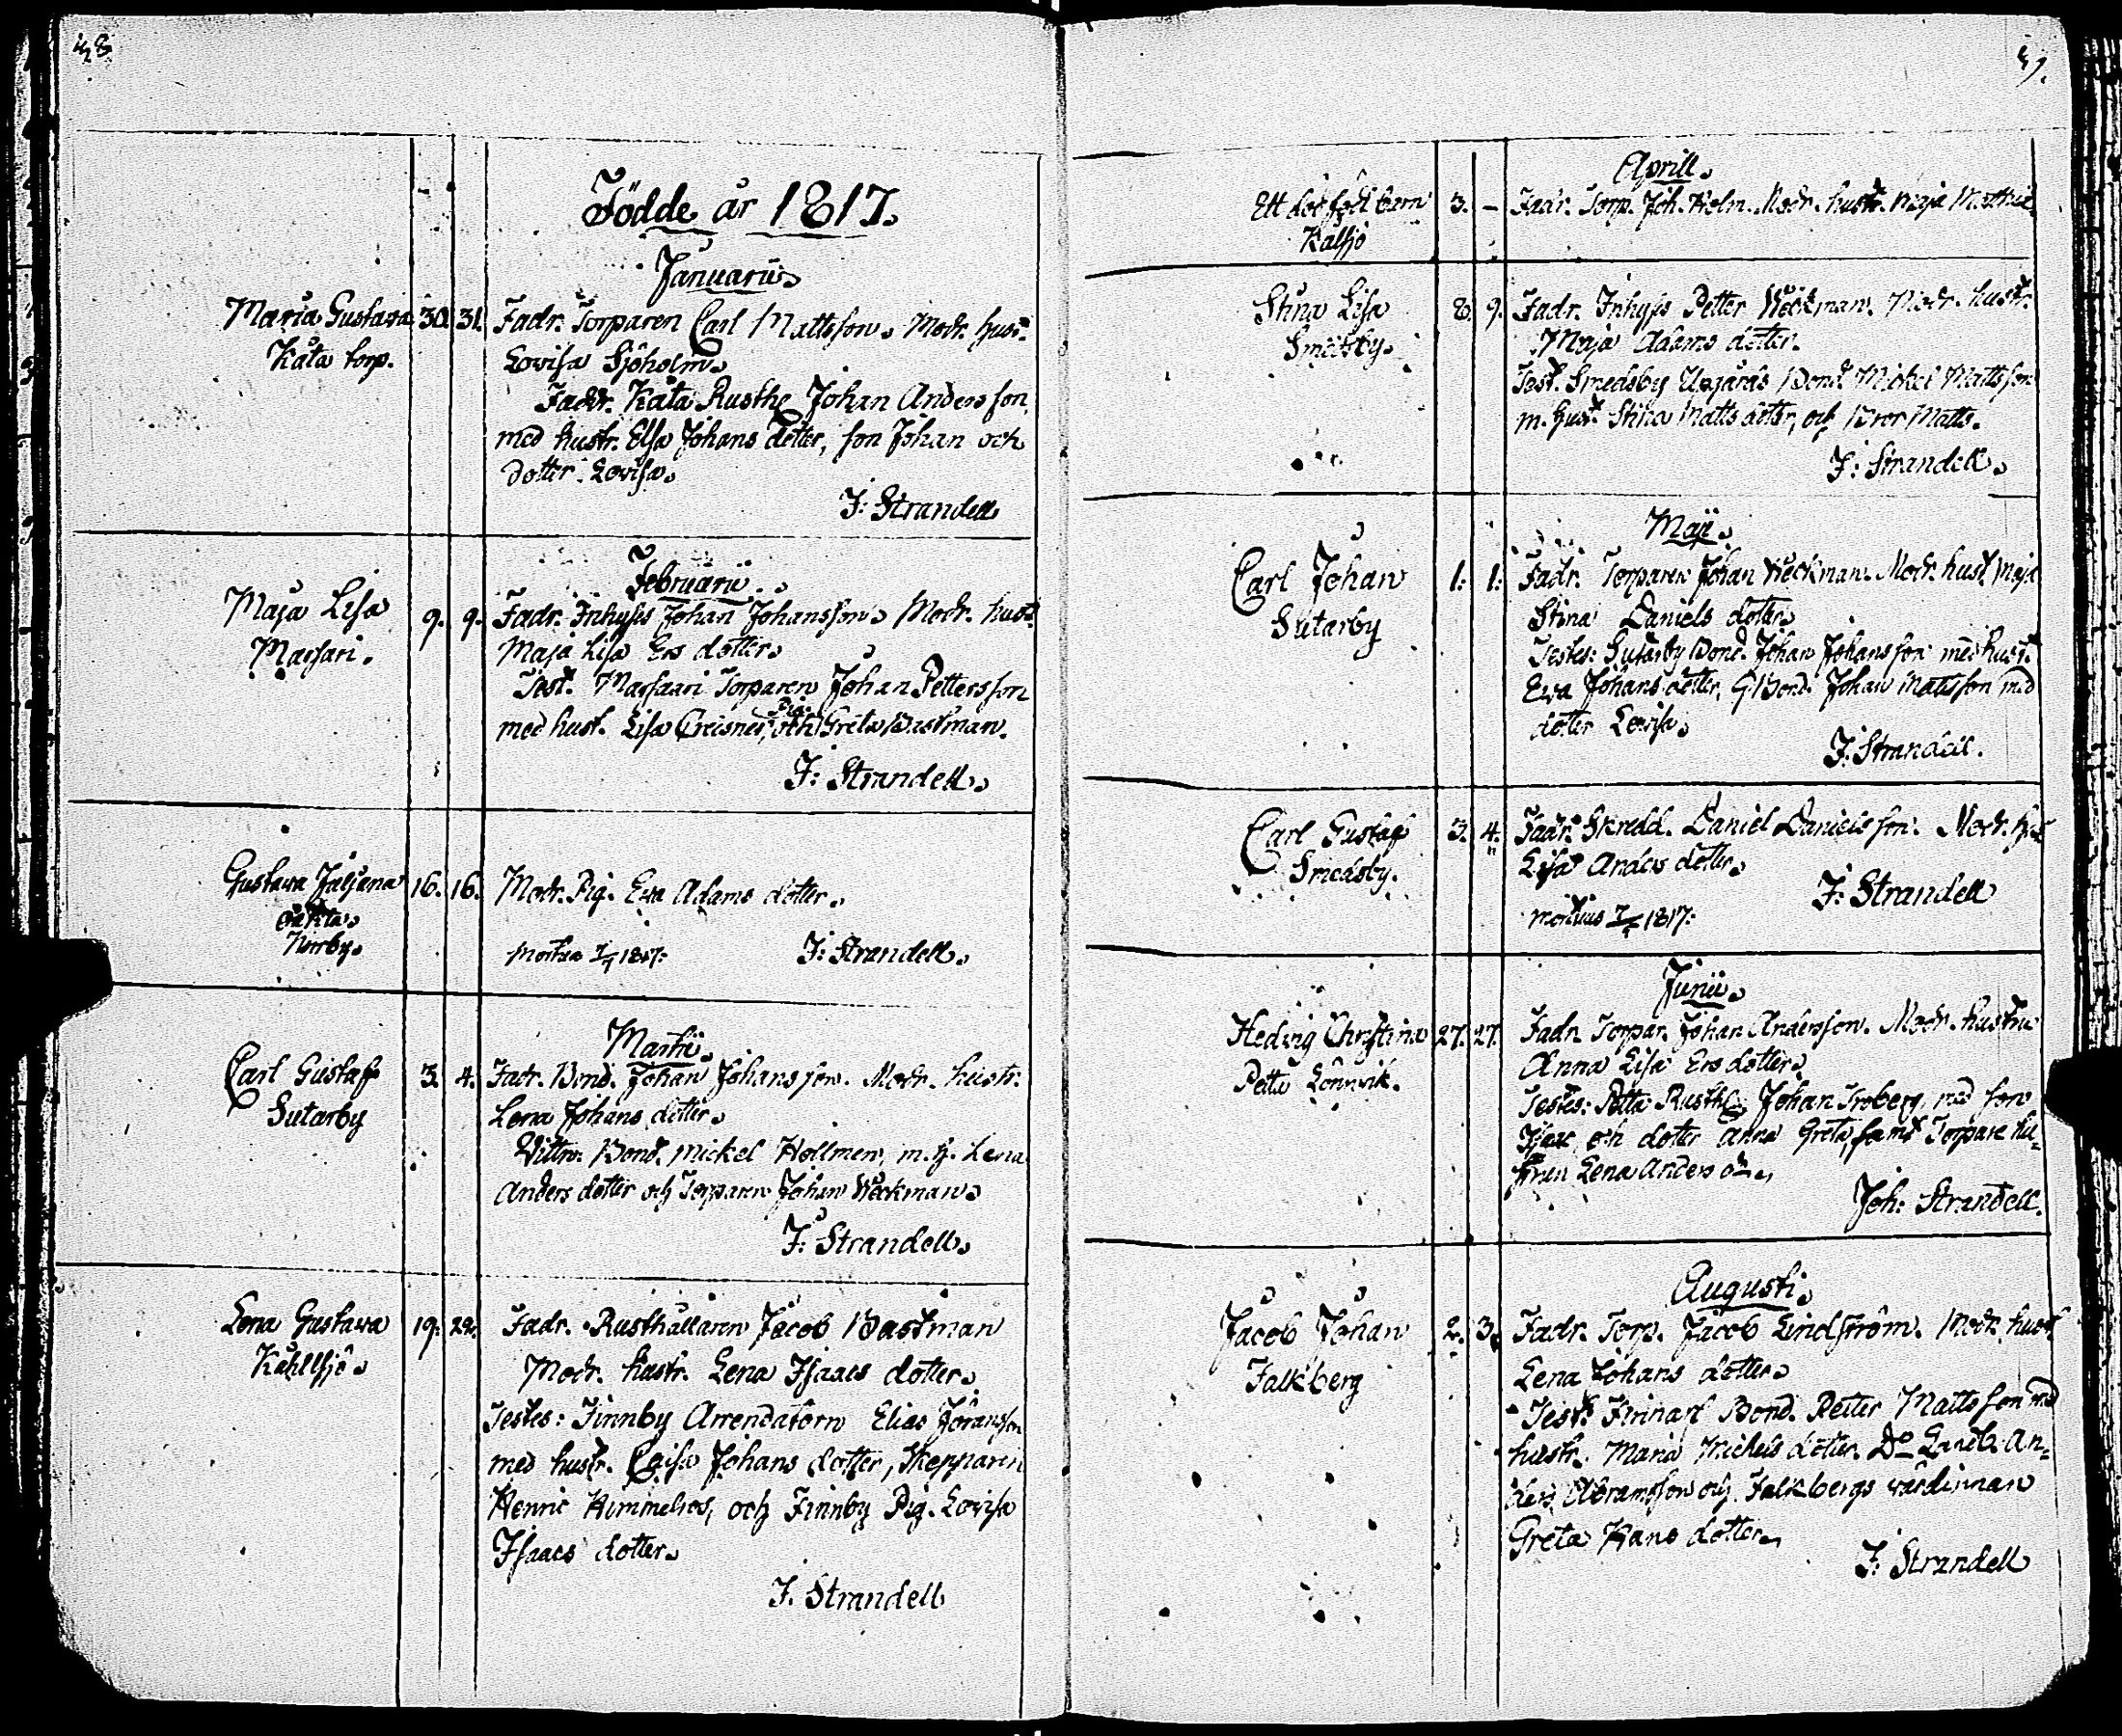 48.
Födde år 1817.
Januarii.
Maria Gustava 30. 31. Fadr. Torparen Carl Mattsson. Modr. hust.
Kåta torp. Lovisa Sjöholm.
Faddr. Kåta Rusth. Johan Andersson,
med hustr. Elsa Johans dotter, son Johan och
dotter Lovisa.
J: Strandell
Februarii.
Maja Lisa 9. 9. Fadr. Inhyses Johan Johansson. Modr. hust.
Massari. Maja Lisa Ers dotter.
Test. Massaari Torparen Johan Pettersson
med hust. Lisa och Pig. Greta Bastman.
J: Strandell.
Gustava Juljana 16. 16. Modr. Pig. Eva Adams dotter.
oäkta.
Norrby. Mortua 1817: J: Strandell.
Martii.
Carl Gustaf 3. 4. Fadr. Bond. Johan Johansson. Modr. hustr.
Sutarby Lena Johans dotter.
Wittn. Bond. Mickel Hollmen, m. h. Lena
Anders dotter och Torparen Johan Weckman.
J: Strandell.
Lena Gustava 19. 22. Fadr. Rusthållaren Jacob Bastman
Kahllsjö. Modr. hustr. Lena Isaacs dotter.
Testes: Finnby Arrendatorn Elias Johansson
med hustr. Caisa Johans dotter, Skepparen
Henric Himmelros, och Finnby Pig. Lovisa
Isaacs dotter.
J. Strandell
49.
Aprill.
Ett död född barn 3. – Fadr. Torp. Joh. Holm. Modr. hustr. Maja
Kalsjö
Stina Lisa 8. 9. Fadr. Inhyses Petter Weckman. Modr. hustr.
Smedsby. Maja Adams dotter.
Test. Smedsby Bond. Mickel Mattsson
m. hust. Stina Matts dotter, och Bror Matts.
J: Strandell.
Maji.
Carl Johan 1: 1: Fadr. Torparen Johan Weckman. Modr. hust. Maja
Sutarby Stina Daniels dotter.
Testes: Sutarby Bond. Johan Johansson med hust.
Eva Johans dotter, G. Bond. Johan Mattsson med
dotter Lovisa.
J: Strandell.
Carl Gustaf 3. 4. Fadr. Skredd. Daniel Danielsson. Modr. hust
Smedsby. Lisa Anders dotter.
J: Strandell
mortuus 1817:
Junii.
Hedvig Christina 27. 27. Fadr. Torpar. Johan Andersson. Modr. hustru
Petta Lönnvik. Anna Lisa Ers dotter.
Testes: Petta Rusth. Johan Broberg, med son
Isac och dotter Anna Greta, samt Torpare hu-
strun Lena Anders dr.
Joh: Strandell.
Augusti.
Jacob Johan 2. 3. Fadr. Torp. Jacob Lindström. Modr. hust.
Falkberg Lena Johans dotter.
Test: Bond. Petter Mattsson med
hustr. Maria Michels dotter. Do Landb. An-
ders Abramsson och Falkbergs värdinnan
Greta Hans dotter.
J: Strandell